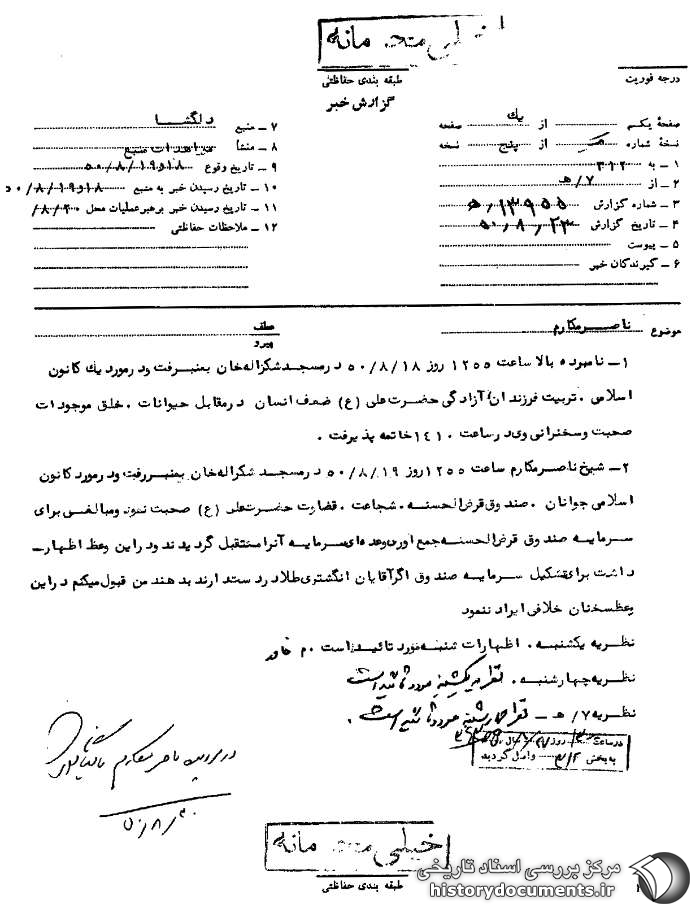 خیلی محرمانه
طبقه بندی حفاظتی
گزارش خبر
درجه فوریت
صفحهٔ یکم از یك صفحه
نسخهٔ شماره از پنج نسخه
۱ ـ به ۳۱۲
۲ ـ از ۷/ﻫ
۳ ـ شماره گزارش ۱۳۹۵۵/ﻫ
۴ ـ تاریخ گزارش ۵۰/۸/۲۳
۵ ـ پیوست
۶ ـ گیرندگان خبر
۷ ـ منبع دلگشا
۸ ـ منشأ مشاهدات منبع
۹ ـ تاریخ وقوع ۱۸و۵۰/۸/۱۹
۱۰ ـ تاریخ رسیدن خبر به منبع ۱۸و۵۰/۸/۱۹
۱۱ ـ تاریخ رسیدن خبر برهبرعملیات محل ۸/۲۰/
۱۲ ـ ملاحظات حفاظتی
موضوع ناصرمکارم
عطف
پیرو
۱ـ نامبرده بالا ساعت ۱۲۵۵ روز ۵۰/۸/۱۸ در مسجد شکراله خان بمنبر رفت و در مورد یك کانون
اسلامی . تربیت فرزندان آزادگی حضرت علی (ع) ضعف انسان در مقابل حیوانات . خلق موجودات
صحبت و سخنرانی وی در ساعت ۱۴۱۰ خاتمه پذیرفت .
۲ـ شیخ ناصر مکارم ساعت ۱۲۵۵ روز ۵۰/۸/۱۹ در مسجد شکراله خان بمنبر رفت و در مورد کانون
اسلامی جوانان . صندوق قرض الحسنه . شجاعت . قضاوت حضرت علی (ع) صحبت نمود و مبالغی برای
سرمایه صندوق قرض الحسنه جمع آوری و عده ای سرمایه آنرا متقبل گردیدند و در این وعظ اظهار ـ
داشت برای تشکیل سرمایه صندوق اگر آقایان انگشتری طلا در دست دارند بدهند من قبول میکنم در این
وعظ سخنان خلافی ایراد ننمود
نظریه یکشنبه . اظهارات شنبه مورد تائید است . م خاور
نظریه چهارشنبه . نظریه یکشنبه مورد تائید است
نظریه ۷/ﻫ ـ نظریه چهارشنبه مورد تائید است .
در ساعت روز سال
به بخش ۳۱۲ واصل گردید
در پرونده ناصر مکارم بایگانی شود
۵۰/۸/۳۰
خیلی محرمانه
طبقه بندی حفاظتی
مرکز بررسی اسناد تاریخی
historydocuments.ir